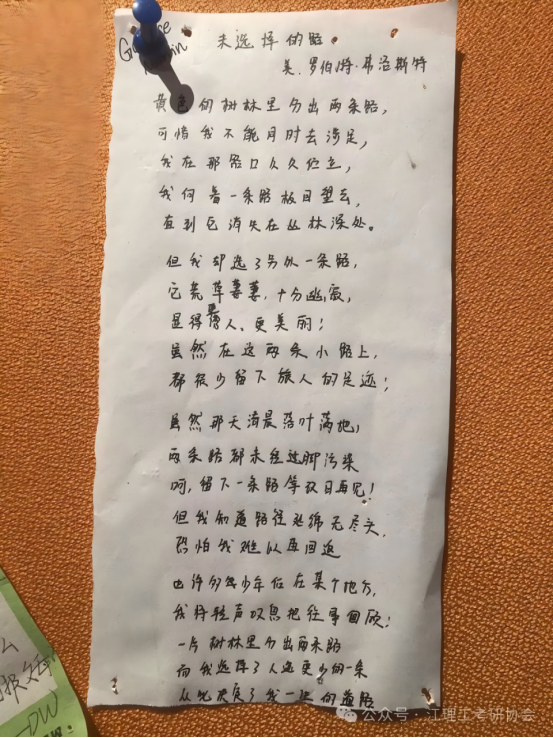 未选择的路
美·罗伯特·弗洛斯特
黄色的树林里分出两条路，
可惜我不能同时去涉足，
我在那路口久久伫立，
我向着一条路极目望去，
直到它消失在丛林深处。
但我却选了另外一条路，
它荒草萋萋，十分幽寂，
显得更诱人、更美丽；
虽然在这两条小路上，
都很少留下旅人的足迹；
虽然那天清晨落叶满地，
两条路都未经过脚污染
呵，留下一条路等改日再见！
但我知道路径延绵无尽头，
恐怕我难以再回返
也许多少年后在某个地方，
我将轻声叹息把往事回顾；
一片树林里分出两条路
而我选择了人迹更少的一条
从此决定了我一生的道路
DW
公众号·江理工考研协会